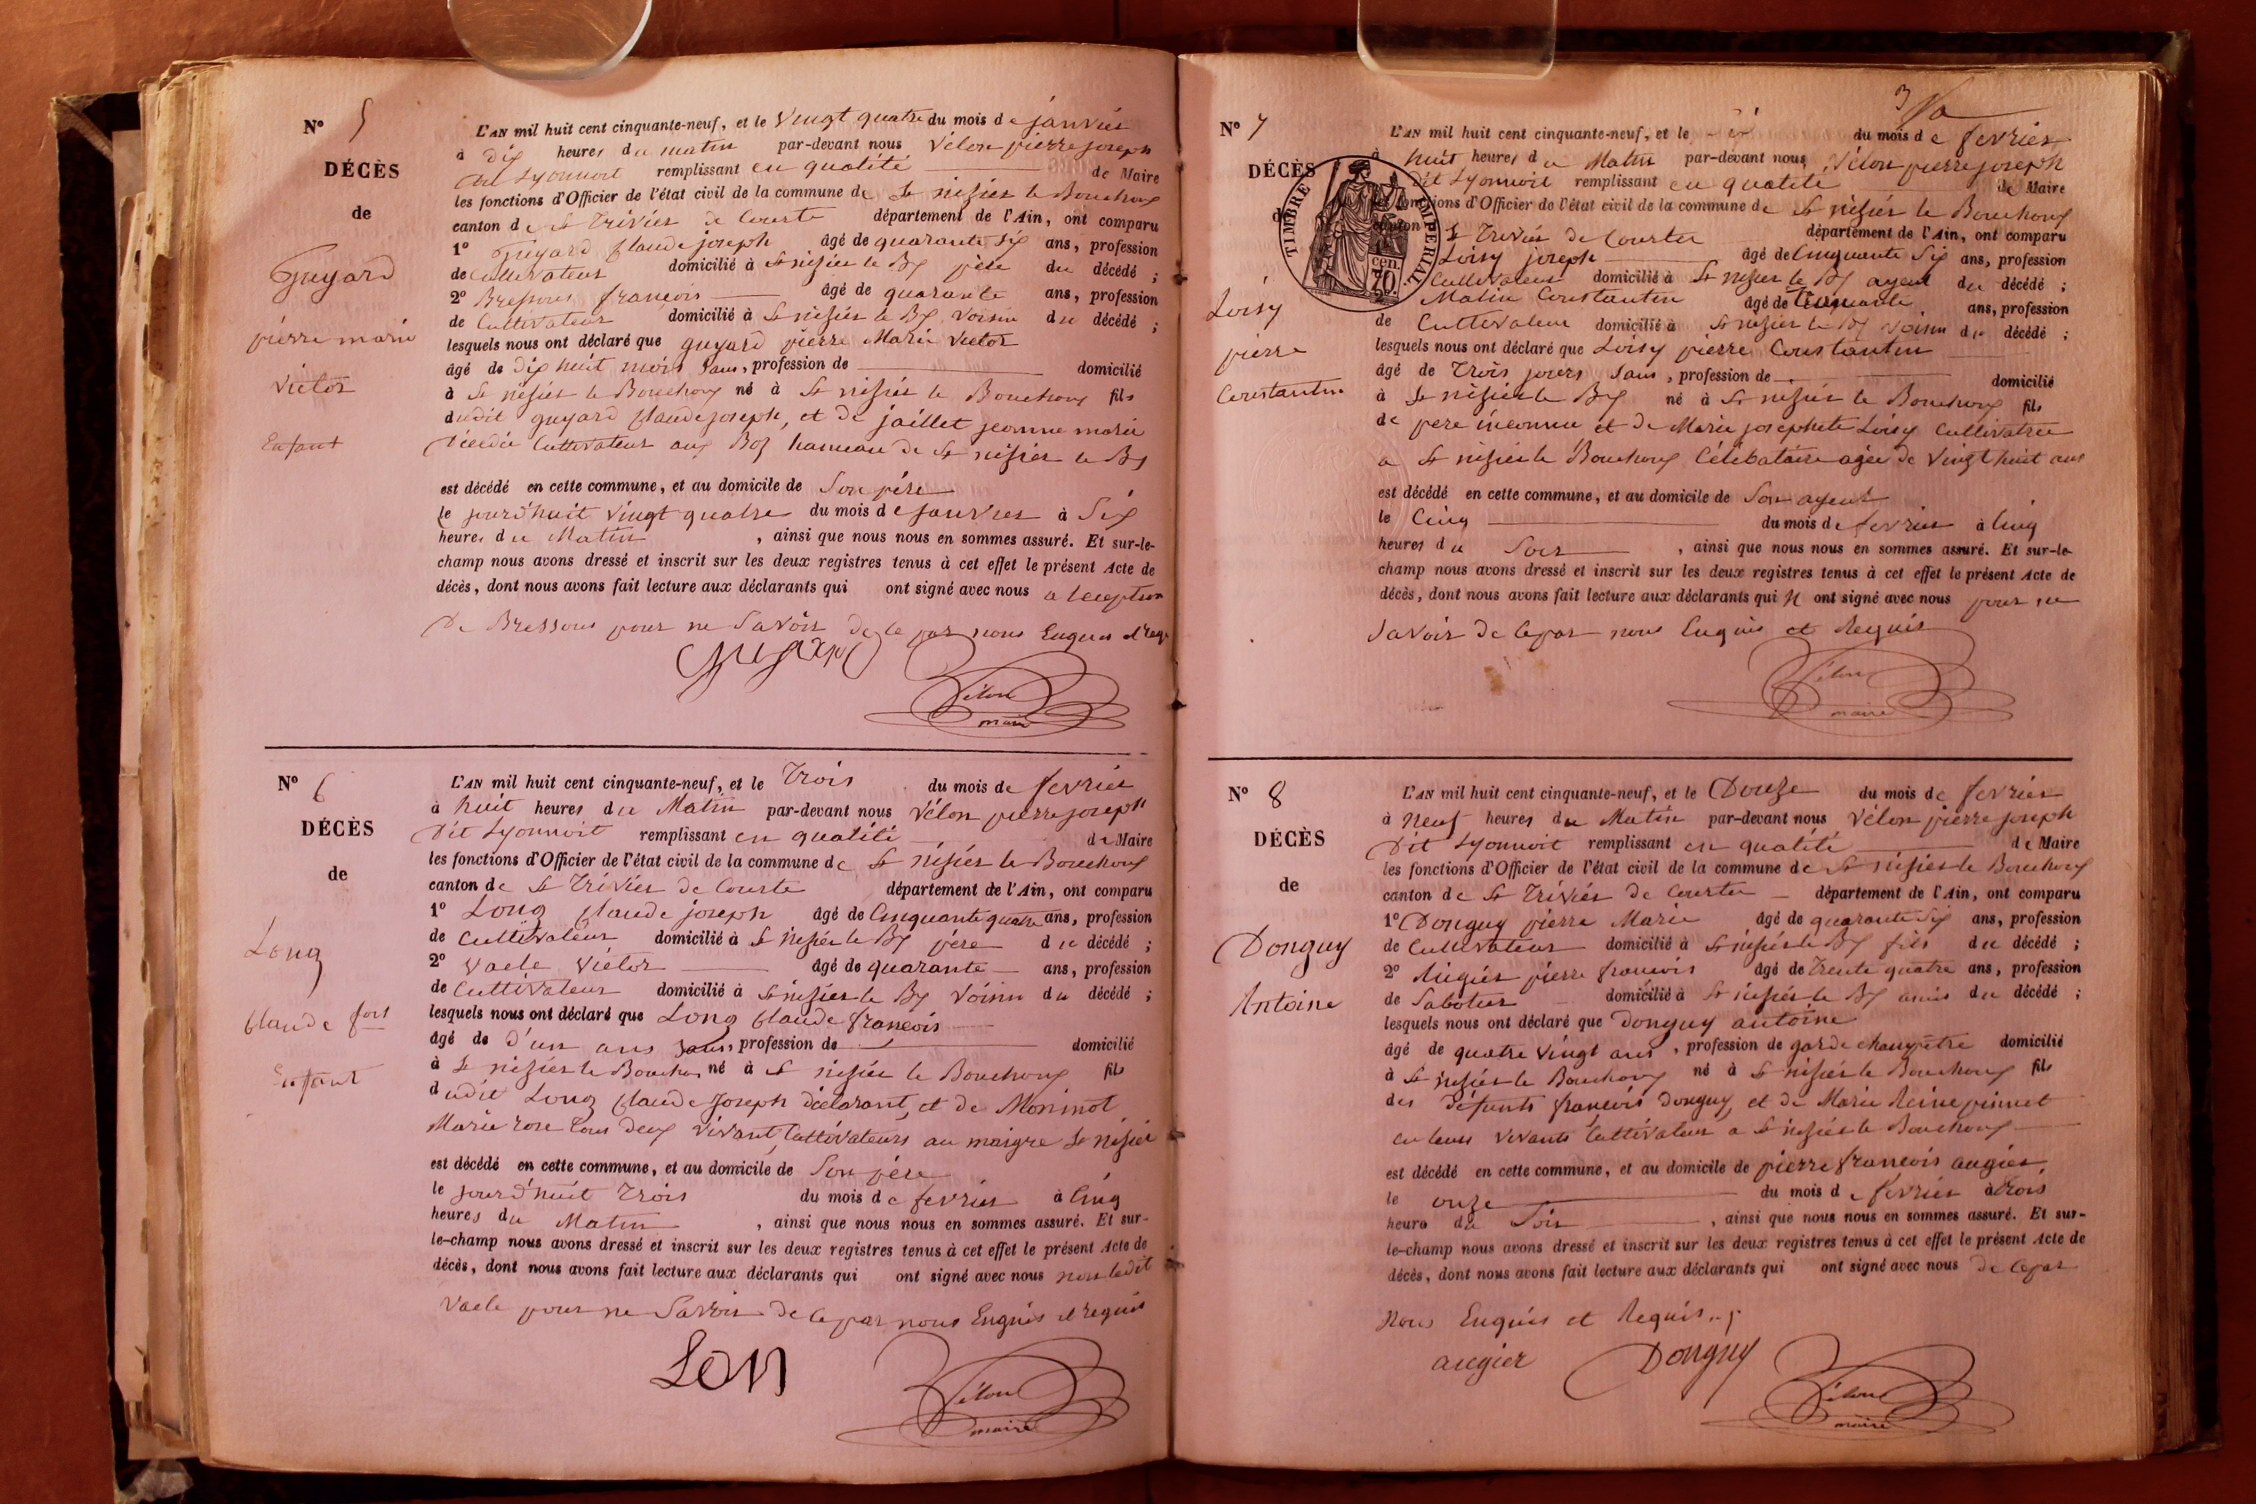 N° 5
DÉCÈS
de
Guyard
pierre marie
victor
Enfant
L'AN mil huit cent cinquante-neuf, et le Vingt quatre du mois de janvier
à dix heures du matin par-devant nous Vélon pierre joseph
dit Lyonnoit remplissant en qualité de Maire
les fonctions d'Officier de l'état civil de la commune de St nizier le Bouchoux
canton de St Trivier de Courte département de l'Ain, ont comparu
1° Guyard Claude joseph âgé de quarante six ans, profession
de Cultivateur domicilié à St nizier le Bx père du décédé ;
2° Bressoux francois âgé de quarante ans, profession
de Cultivateur domicilié à St nizier le Bx Voisin du décédé ;
lesquels nous ont déclaré que guyard pierre Marie Victor
âgé de dix huit mois sans, profession de domicilié
à St nizier le Bouchoux né à St nizier le Bouchoux fils
dudit guyard Claude joseph, et de jaillet jeanne marie
décédée Cultivateur aux hameau de St nizier le Bx
est décédé en cette commune, et au domicile de Son père
le jourd'huit vingt quatre du mois de janvier à Six
heures du Matin, ainsi que nous nous en sommes assuré. Et sur-le-
champ nous avons dressé et inscrit sur les deux registres tenus à cet effet le présent Acte de
décès, dont nous avons fait lecture aux déclarants qui ont signé avec nous a lexception
De Bressoux pour ne Savoir de ce par nous Enquis et requ
guyard
Vélon
maire
N° 6
DÉCÈS
de
Long
Claude fois
Enfant
L'AN mil huit cent cinquante-neuf, et le Trois du mois de fevrier
à huit heures du Matin par-devant nous Vélon pierre joseph
Dit Lyonnoit remplissant en qualité de Maire
les fonctions d'Officier de l'état civil de la commune de St nizier le Bouchoux
canton de St Trivier de Courte département de l'Ain, ont comparu
1° Long Claude joseph âgé de Cinquante quatre ans, profession
de Cultivateur domicilié à St nizier le Bx père du décédé ;
2° Vacle Victor âgé de quarante ans, profession
de Cultivateur domicilié à St nizier le Bx Voisin du décédé ;
lesquels nous ont déclaré que Long Claude francois
âgé de d'un ans sans, profession de domicilié
à St nizier le Bouchou né à St nizier le Bouchoux fils
dudit Long Claude Joseph déclarant, et de Moninot
Marie rose tous deux vivant, Cultivateurs au maigre St nizier
est décédé en cette commune, et au domicile de Son père
le jourd'huit Trois du mois de fevrier à Cinq
heures du Matin, ainsi que nous nous en sommes assuré. Et sur-
le-champ nous avons dressé et inscrit sur les deux registres tenus à cet effet le présent Acte de
décès, dont nous avons fait lecture aux déclarants qui ont signé avec nous non ledit
Vacle pour ne Savoir de ce par nous Enquis et requis
LON
Vélon
maire
N° 7
DÉCÈS
de
Loisy
pierre
Constantin
TIMBRE IMPÉRIAL
cen.
70.
L'AN mil huit cent cinquante-neuf, et le du mois de fevrier
à huit heures du Matin par-devant nous Vélon pierre joseph
dit Lyonnoit remplissant en qualité de Maire
les fonctions d'Officier de l'état civil de la commune de St nizier le Bouchoux
canton St Trivier de Courte département de l'Ain, ont comparu
Loisy joseph âgé de Cinquante Six ans, profession
Cultivateur domicilié à St nizier le Bx ayeul du décédé ;
Matin Constantin âgé de Cinquante ans, profession
de Cultivateur domicilié à St nizier le Bx voisin du décédé ;
lesquels nous ont déclaré que Loisy pierre Constantin
âgé de Trois jours sans, profession de domicilié
à St nizier le Bx né à St nizier le Bouchoux fils
de père inconnu et de Marie josephete Loisy Cultivatrice
a St nizier le Bouchoux Célébataire agée de Vingt huit ans
est décédé en cette commune, et au domicile de Son ayeul
le Cinq du mois de fevrier à Cinq
heures du Soir, ainsi que nous nous en sommes assuré. Et sur-le-
champ nous avons dressé et inscrit sur les deux registres tenus à cet effet le présent Acte de
décès, dont nous avons fait lecture aux déclarants qui n ont signé avec nous pour ne
Savoir de ce par nous Enquis et Requis
Vélon
maire
N° 8
DÉCÈS
de
Donguy
Antoine
L'AN mil huit cent cinquante-neuf, et le Douze du mois de fevrier
à neuf heures du Matin par-devant nous Vélon pierre joseph
Dit Lyonnoit remplissant en qualité de Maire
les fonctions d'Officier de l'état civil de la commune de St nizier le Bouchoux
canton de St Trivier de Courte département de l'Ain, ont comparu
1° Donguy pierre Marie âgé de quarante six ans, profession
de Cultivateur domicilié à St nizier le Bx fils du décédé ;
2° Augier pierre francois âgé de Trente quatre ans, profession
de Sabotier domicilié à St nizier le Bx amis du décédé ;
lesquels nous ont déclaré que Donguy antoine
âgé de quatre vingt ans, profession de garde champêtre domicilié
à St nizier le Bouchoux né à St nizier le Bouchoux fils
des défunts françois Donguy, et de Marie Reine pinnet
en leurs vivants Cultivateur a St nizier le Bouchoux
est décédé en cette commune, et au domicile de pierre francois augier,
le onze du mois de fevrier à trois
heure du Soir, ainsi que nous nous en sommes assuré. Et sur-
le-champ nous avons dressé et inscrit sur les deux registres tenus à cet effet le présent Acte de
décès, dont nous avons fait lecture aux déclarants qui ont signé avec nous de ce par
Nous Enquis et Requis
augier Donguy
Vélon
maire